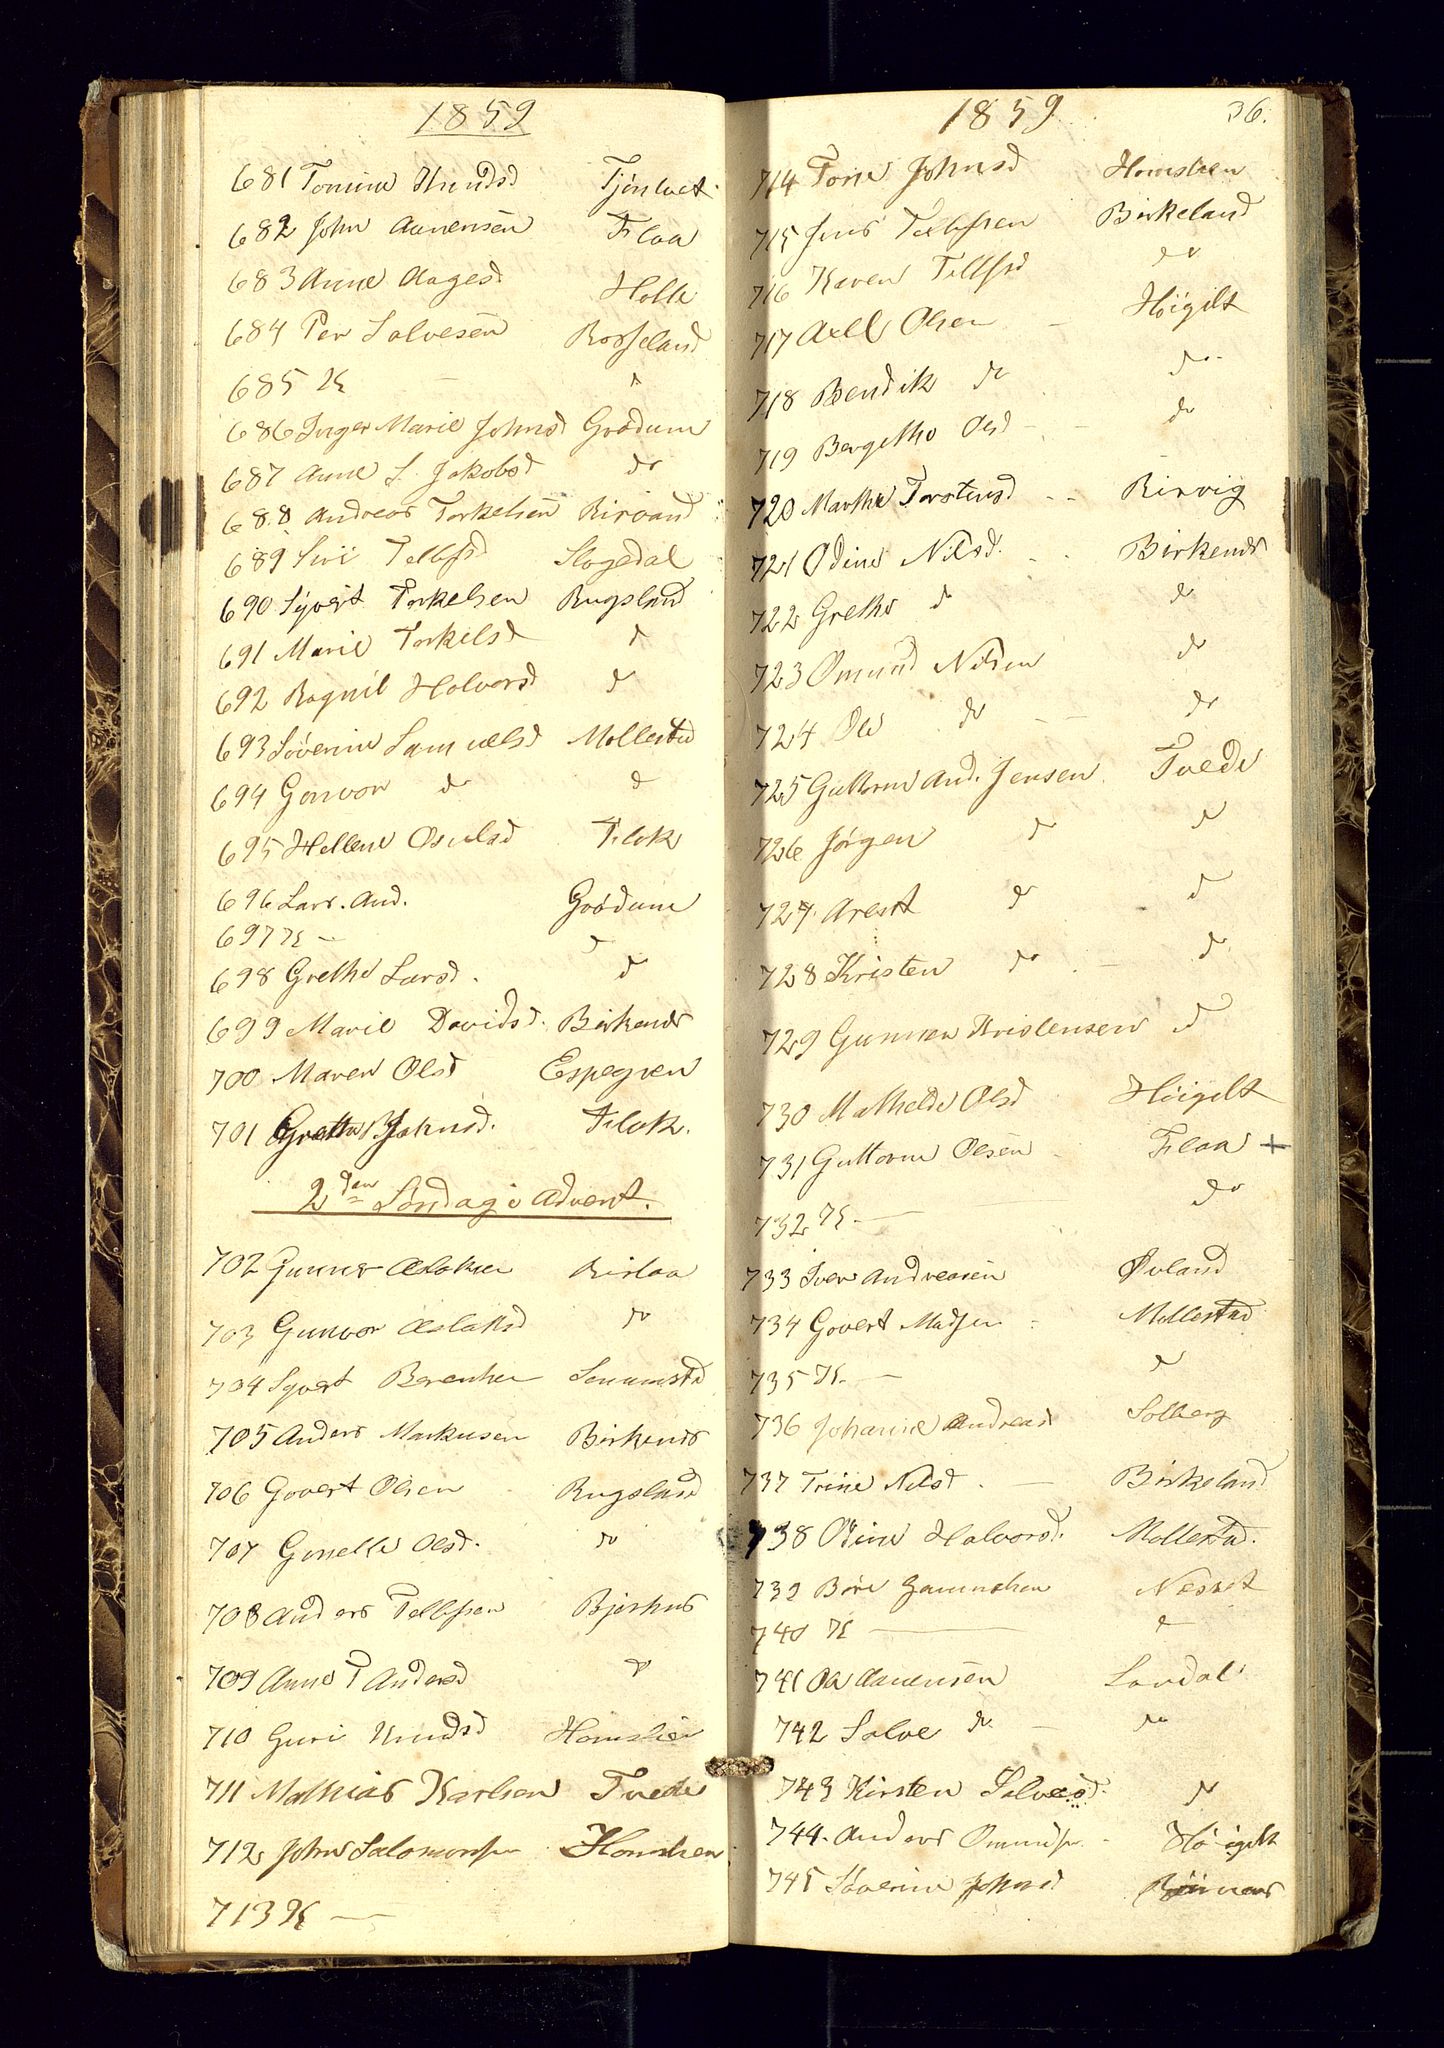 1859
681 Tomine Knudsd Tjönlvet
682 John Aanensen Flaa
683 Anne Aagesd Holte
684 Per Salvesen Rosseland
685 K — d
686 Inger Marie Johnsd Grödum
687 Anne S. Jakobsd do
688 Andreas Torkelsen Risvand
689 Siri Tellfsd Slogedal
690 Syvert Torkelsen Rugsland
691 Marie Torkelsd d
692 Ragnil Halvorsd d
693 Søverine Samuelsd Mollestad
694 Gonvor d d
695 Hellene Osulsd Flak
696 Lars. And. Grödum
697 K — d
698 Grethe Larsd. d
699 Marie Davidsd. Birkenes
700 Maren Olsd Espegren
701 Grethe B Johnsd. Flak.
2den Søndag i Advent.
702 Gunner Aslaksen Rislaa
703 Gunvor Aslaksd do
704 Syvert Berentsen Senumstd
705 Anders Markusen Birkenes
706 Govert Olsen Rugsland
707 Gunelle Olsd. do
708 Anders Tellefsen Bjorhus
709 Anne T Andersd d
710 Guri Knudsd Homslien
711 Mathias Karlsen Tvede
712 John Salomonsen Homslien
713 K —
1859 36.
714 Tone Johnsd Homslien
715 Jens Tellefsen Birkeland
716 Karen Tellfsd do
717 Axel Olsen — Höigilt
718 Bendik do do
719 Bergethe Olsd - - do
720 Marthe Torstensd - - Risvig
721 Odine Nilsd. - Birkenes
722 Grethe d do
723 Omund Nilsen do
724 Ole do — do
725 Guttorm And. Jensen Tvede
726 Jörgen do d
727. Arent do d
728 Kristen do - d
729 Gunner Kristensen d
730 Mathelde Olsd Höigilt
731 Guttorm Olsen - Flaa +
732 K. — do
733 Iver Andreasen Øvland
734 Govert Madsen - Mollestad
735 K. — d
736 Johanne Andreasd Solberg
737 Trine Nilsd. — Birkeland
738 Odine Halvorsd. Mollestad.
739 Böre Gunnersen Nesset
740 K — d
741 Ole Aanensen Lavdal
742 Salve do — do
743 Kirsten Salvesd. d
744. Anders Omundsen - Höigilt
745 Søverine Johnsd